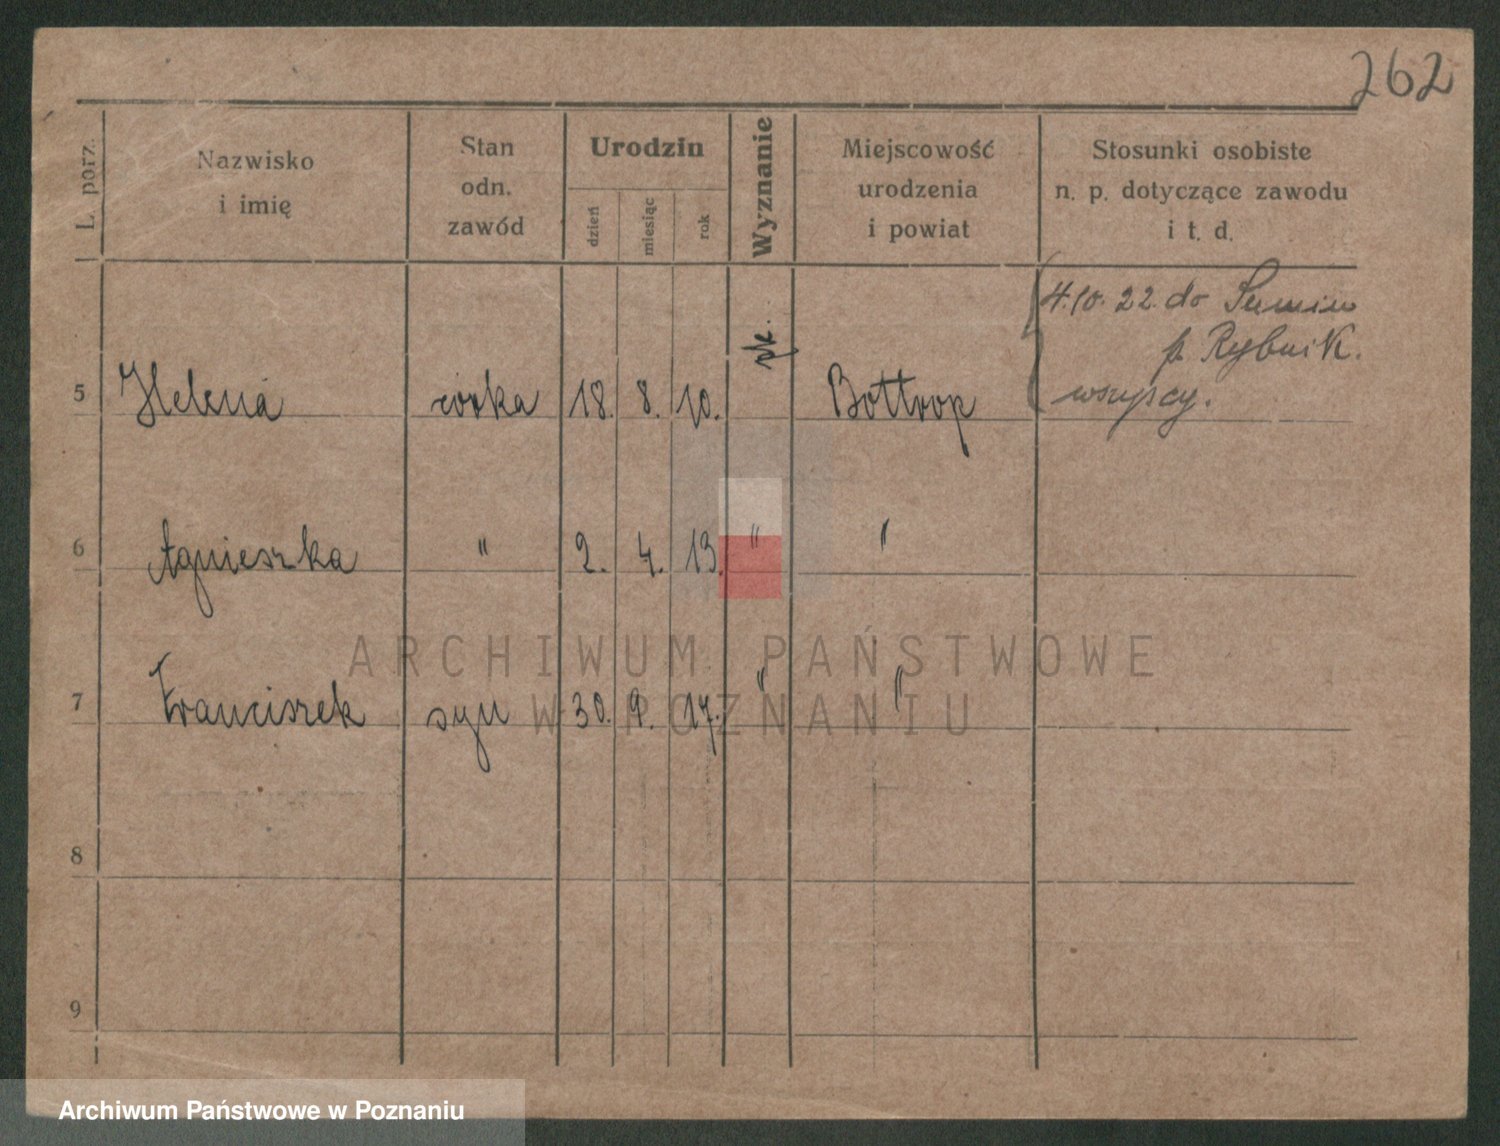 262
L. porz.
Nazwisko
i imię
Stan
odn.
zawód
Urodzin
dzień
miesiąc
rok
Wyznanie
Miejscowość
urodzenia
i powiat
Stosunki osobiste
n. p. dotyczące zawodu
i t. d.
4.10.22. do Sumin
p. Rybnik.
wszyscy.
5 Helena córka 18. 8. 10. rk. Bottrop
6 Agnieszka " 2. 4. 13. " "
7 Franciszek syn 30. 9. 17. " "
8
9
ARCHIWUM PAŃSTWOWE
W POZNANIU
Archiwum Państwowe w Poznaniu